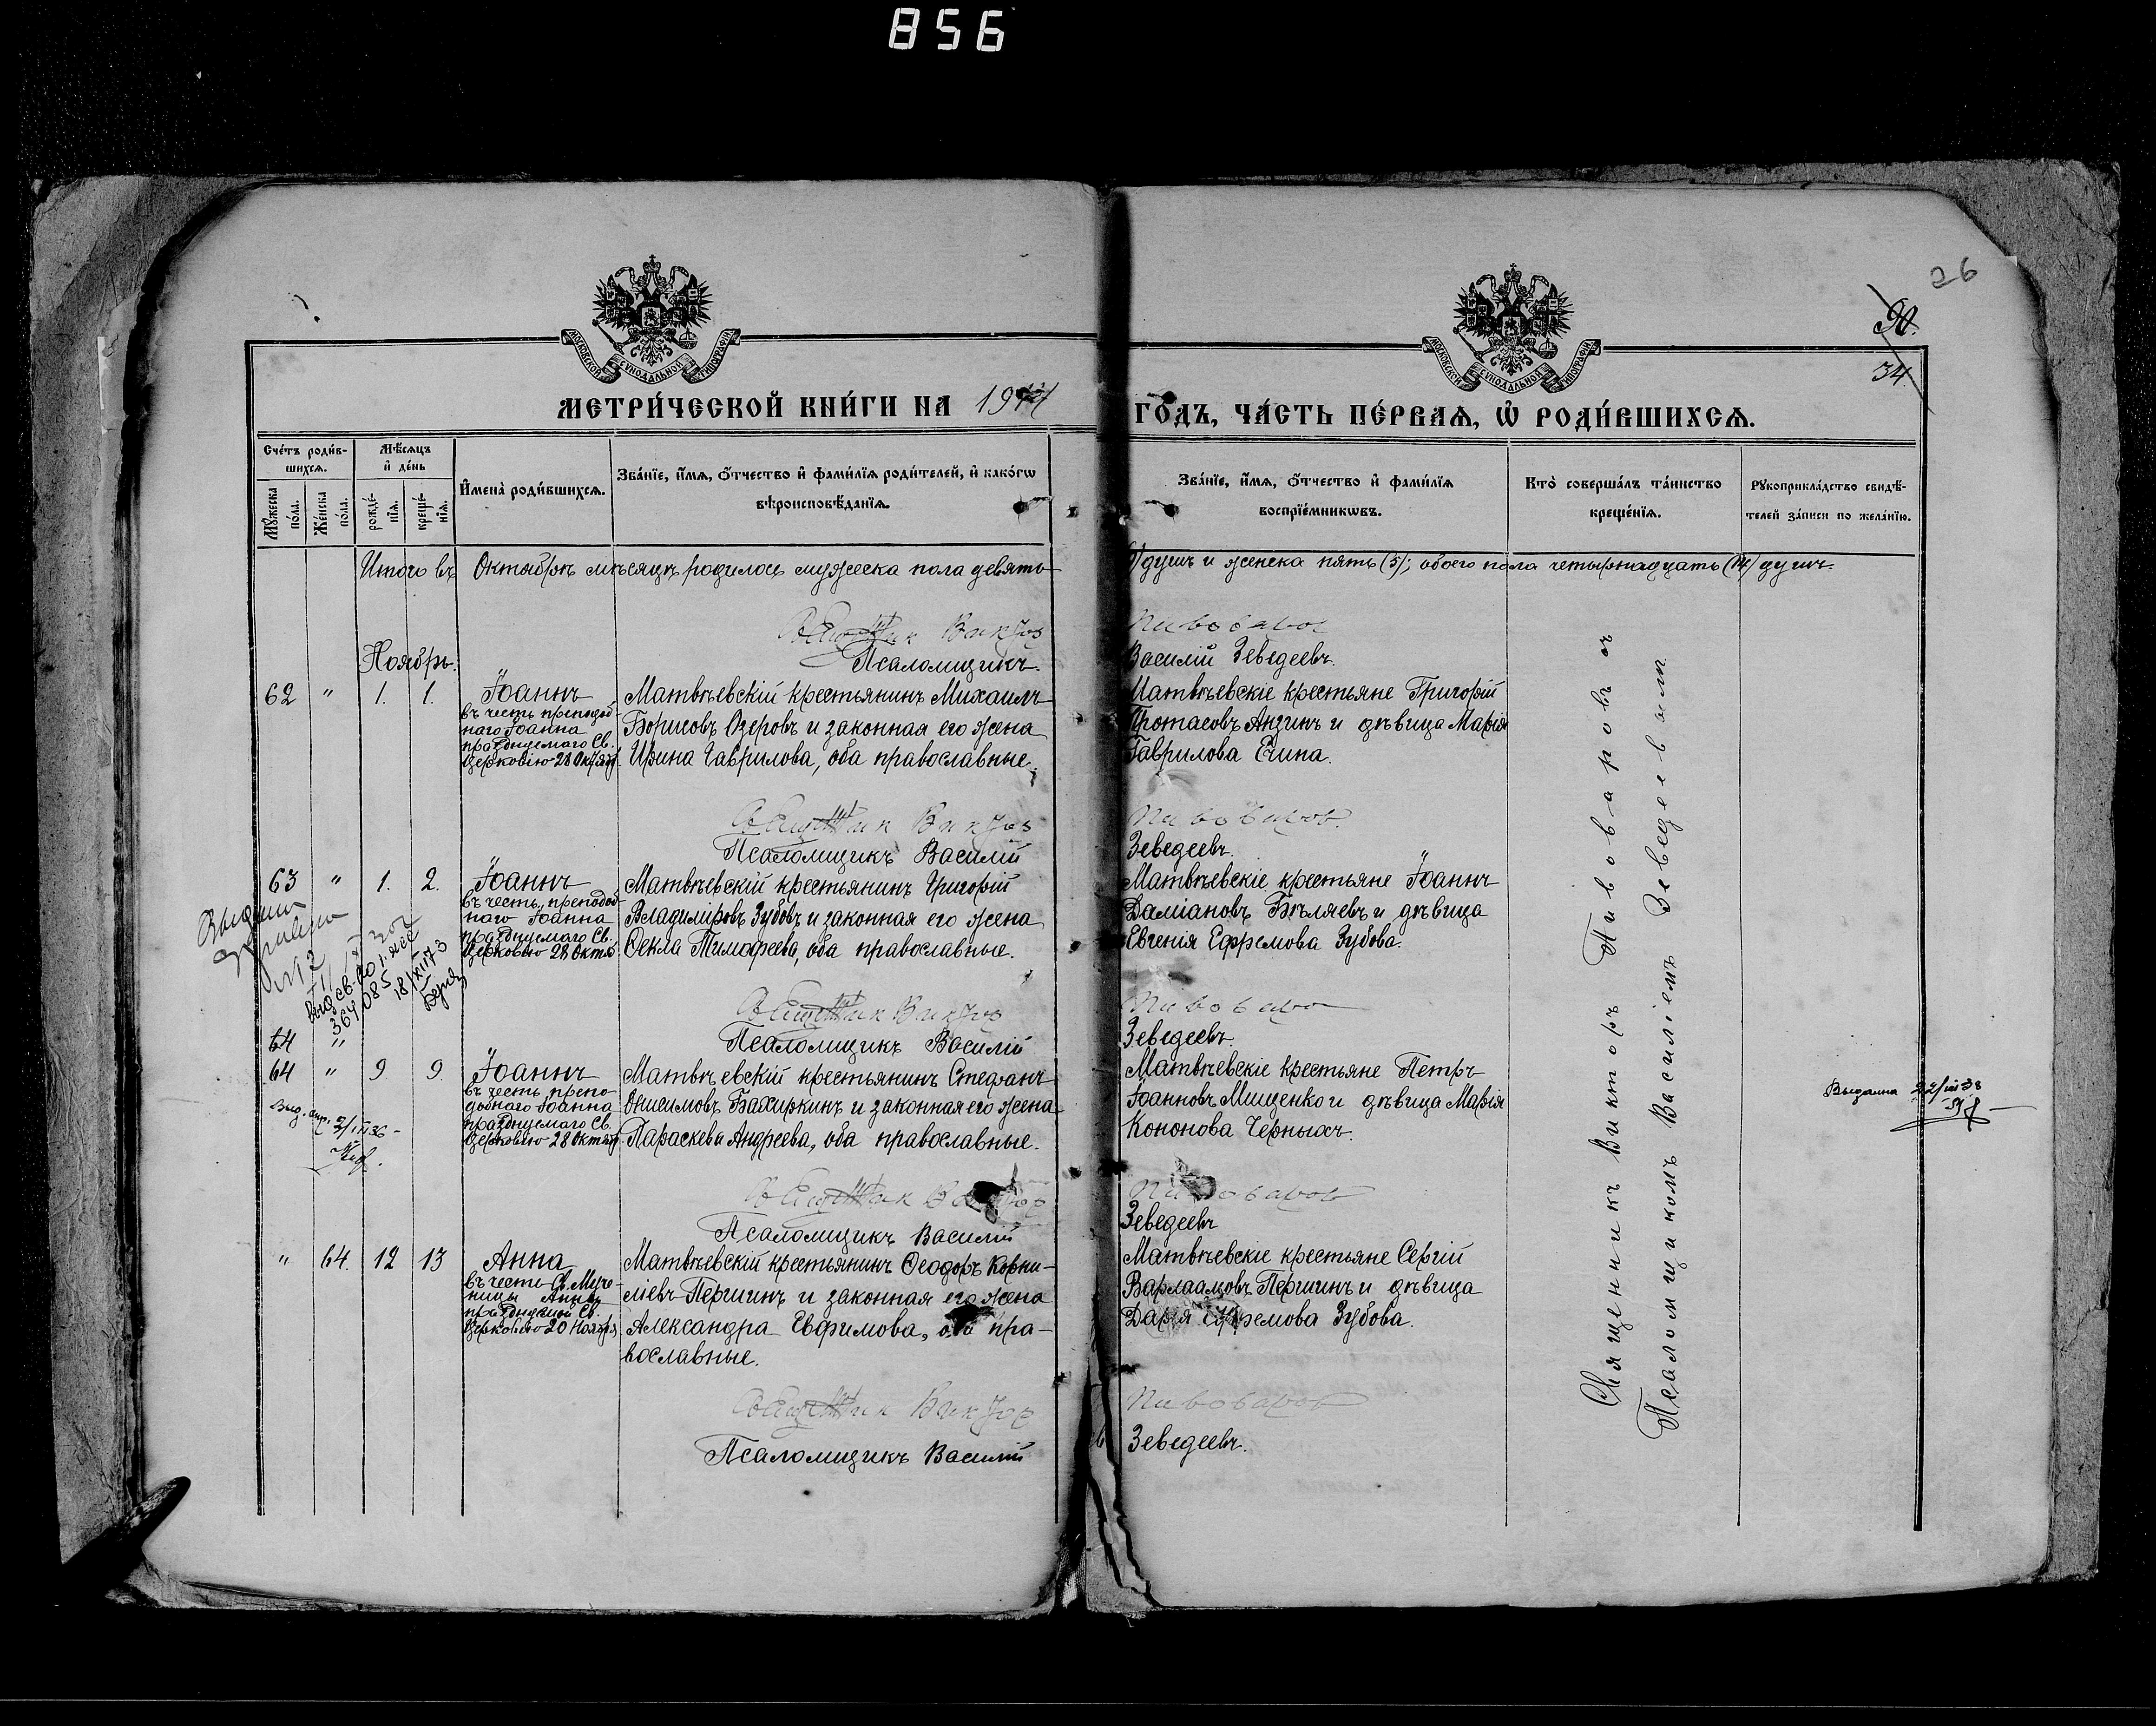 856
26
90.
34
МОСКОВСКОЙ СУНОДАЛЬНОЙ ТИПОГРАФІИ
МОСКОВСКОЙ СУНОДАЛЬНОЙ ТИПОГРАФІИ
МЕТРИ́ЧЕСКОЙ КНИ́ГИ НА 191 ГО́ДЪ, ЧА́СТЬ ПЕ́РВАѦ, Ѡ҆ РОДИ́ВШИХСѦ.
Сче́тъ роди́в-
шихсѧ.
Мꙋ́жеска
по́ла.
Же́нска
по́ла.
Мѣ́сѧцъ
и҆ де́нь
рожде́-
нїѧ.
креще́-
нїѧ.
И҆мена̀ роди́вшихсѧ.
Зва́нїе, и҆́мѧ, о҆́тчество и҆ фами́лїѧ роди́телей, и҆ како́гѡ
вѣроисповѣ́данїѧ.
Зва́нїе, и҆́мѧ, о҆́тчество и҆ фами́лїѧ
воспрїе́мникѡвъ.
Кто̀ соверша́лъ та́инство
креще́нїѧ.
Рꙋкоприкла́дство свидѣ́-
телей за́писи по жела́нїю.
Итого въ Октябрѣ мѣсяцѣ родилось мужеска пола девять
9) душъ и женска пять (5); обоего пола четырнадцать (14) душъ.
Священник Виктор Пивоваров
Псаломщикъ Василій Зеведеевъ.
Ноябрь.
62 " 1. 1. Іоаннъ
въ честь преподоб-
наго Іоанна
празднуемаго Св.
Церковію 28 Октяб.
Матвѣевскій крестьянинъ Михаилъ
Борисовъ Озеровъ и законная его жена
Ирина Гаврилова, оба православные.
Матвѣевскіе крестьяне Григорій
Протасовъ Анзинъ и дѣвица Марія
Гаврилова Ечина.
Священник Виктор Пивоваров.
Псаломщикъ Василій Зеведеевъ.
63 " 1. 2. Іоаннъ
въ честь преподоб-
наго Іоанна
празднуемаго Св.
Церковію 28 Октяб.
Матвѣевскій крестьянинъ Григорій
Владиміровъ Зубовъ и законная его жена
Ѳекла Тимофеева, оба православные.
Матвѣевскіе крестьяне Іоаннъ
Даміановъ Бѣляевъ и дѣвица
Евгенія Ефремова Зубова.
364085
18/XII 73
Священник Виктор Пивоваров
Псаломщикъ Василій Зеведеевъ.
64 "
64 " 9 9. Іоаннъ
въ честь препо-
добнаго Іоанна
празднуемаго Св.
Церковію 28 Октяб.
Матвѣевскій крестьянинъ Стефанъ
Онисимовъ Бахиркинъ и законная его жена
Параскева Андреева, оба православные.
Матвѣевскіе крестьяне Петръ
Іоанновъ Мищенко и дѣвица Марія
Кононова Черныхъ.
Выданна
Священник Виктор Пивоваров
Псаломщикъ Василій Зеведеевъ
" 64. 12 13 Анна
въ честь Св. Муче-
ницы Анны
Св.
Церковію 20 Ноября.
Матвѣевскій крестьянинъ Ѳеодоръ Корни-
ліевъ Першинъ и законная его жена
Александра Евфимова, оба пра-
вославные.
Матвѣевскіе крестьяне Сергій
Варлаамовъ Першинъ и дѣвица
Дарія Ефремова Зубова.
Священник Виктор Пивоваров
Псаломщикъ Василій Зеведеевъ.
Священникъ Викторъ Пивоваровъ съ
Псаломщикомъ Василіемъ Зеведеевымъ.